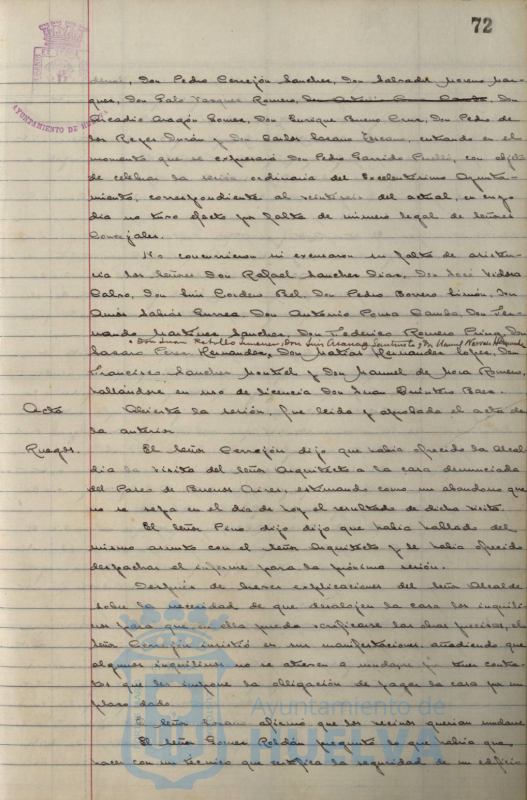 72
AYUNTAMIENTO DE
Don Pedro Cerrejón Sanchez, Don Salvador Moreno Mar-
quez, Don Galo Vazquez Romero, Don
Arcadio Aragón Gomez, Don Enrique Bueno Cruz, Don Pedro de
los Reyes Durán y Don Carlos Lozano, entrando en el
momento que se expresará Don Pedro Garrido Perelló, con objeto
de celebrar la sesión ordinaria del Excelentísimo Ayunta-
miento, correspondiente al veintiseis del actual, en cuyo
dia no tuvo efecto por falta de número legal de Señores
Concejales.
No concurrieron ni excusaron su falta de asisten-
cia los Señores Don Rafael Sanchez Diaz, Don José
Calvo, Don Luis Cordero Bel, Don Pedro Borrero Limón, Don
Amós Sabrás Gurrea, Don Antonio Ponce, Don Fer-
nando Martinez Sanchez, Don Federico Romero, Don
Don Juan Rebollo Jimenez, Don Luis y Don Manuel
Lazaro Perez Hernandez, Don Matias Hernandez Lopez, Don
Francisco Sanchez y Don Manuel de Mora Romero,
hallándose en uso de licencia Don Juan Quintero Baez.
Acta Abierta la sesión, fue leida y aprobada el acta de
la anterior.
Ruegos. El Señor Cerrejón dijo que habia ofrecido la Alcal-
dia la visita del Señor Arquitecto a la casa denunciada
del Paseo de Buenos Aires, estimando como un abandono que
no se sepa en el dia de hoy el resultado de dicha visita.
El Señor Pino dijo dijo que habia hablado del
mismo asunto con el Señor Arquitecto y le habia ofrecido
despachar el informe para la próxima sesión.
Después de breves explicaciones del Señor Alcalde
sobre la necesidad de que desalojen la casa los inquili-
nos para que en ella pueda verificarse las obras precisas, el
Señor Cerrejón insistió en sus manifestaciones, añadiendo que
algunos inquilinos no se atreven a mudarse por tener contra-
tos que les impone la obligación de pagar la casa por un
plazo dado.
El Señor Lozano afirmó que los vecinos querian mudarse
El Señor Gomez Roldán preguntó lo que habia que
hacer con un técnico que certifica la seguridad de un edificio
Ayuntamiento de
HUELVA